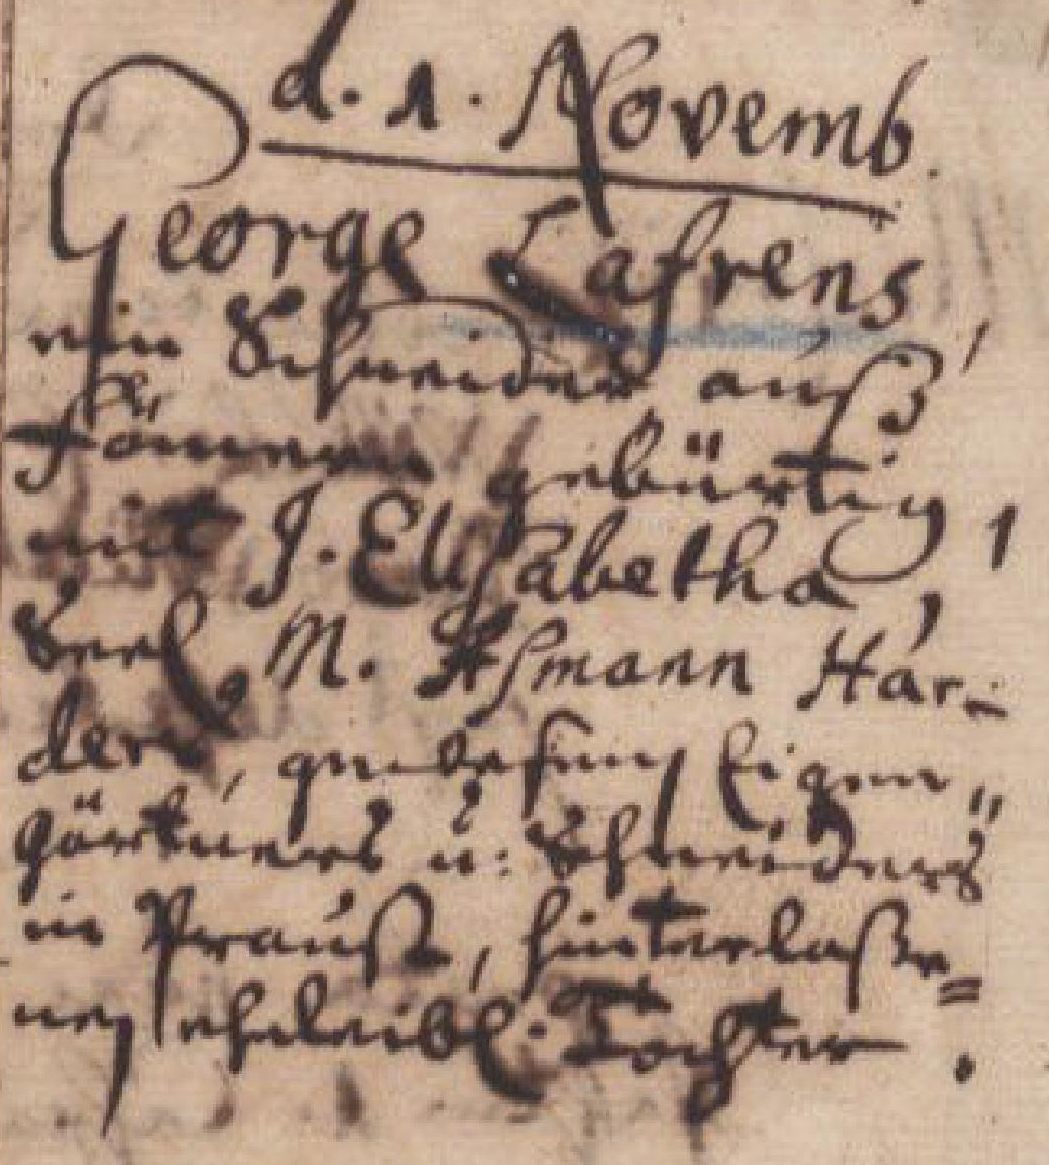 d. 1. Novemb.
George Lafrens,
ein Schneider auß
gebürtig,
mit J. Elisabetha,
Seel. M. Aßmann Har-
ders, gewesenen Eigen"
gärtners u. Schneiders
in Praust, hinterlaße=
nen ehleibl. Tochter.